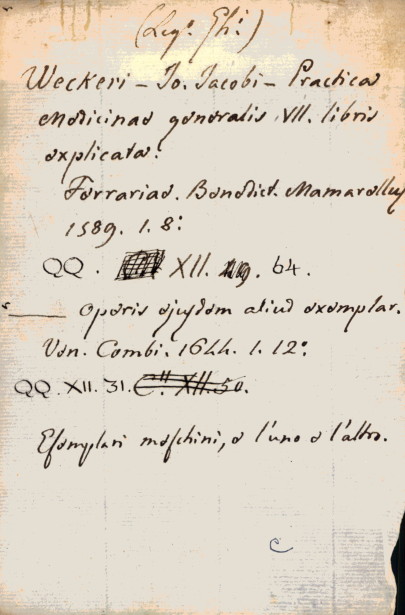 (Leg.º Gh.i)
Weckeri - Jo. Jacobi - Practica
Medicinae generalis VII. libris
explicata:
Ferrariae. Benedict. Mamarelly
1589. 1. 8:
QQ. XII. 64.
——— operis ejusdem aliud exemplar.
Ven. Combi. 1644. 1. 12:
QQ. XII. 31. C.II XII. 50.
Esemplari meschini, e l'uno e l'altro.
C